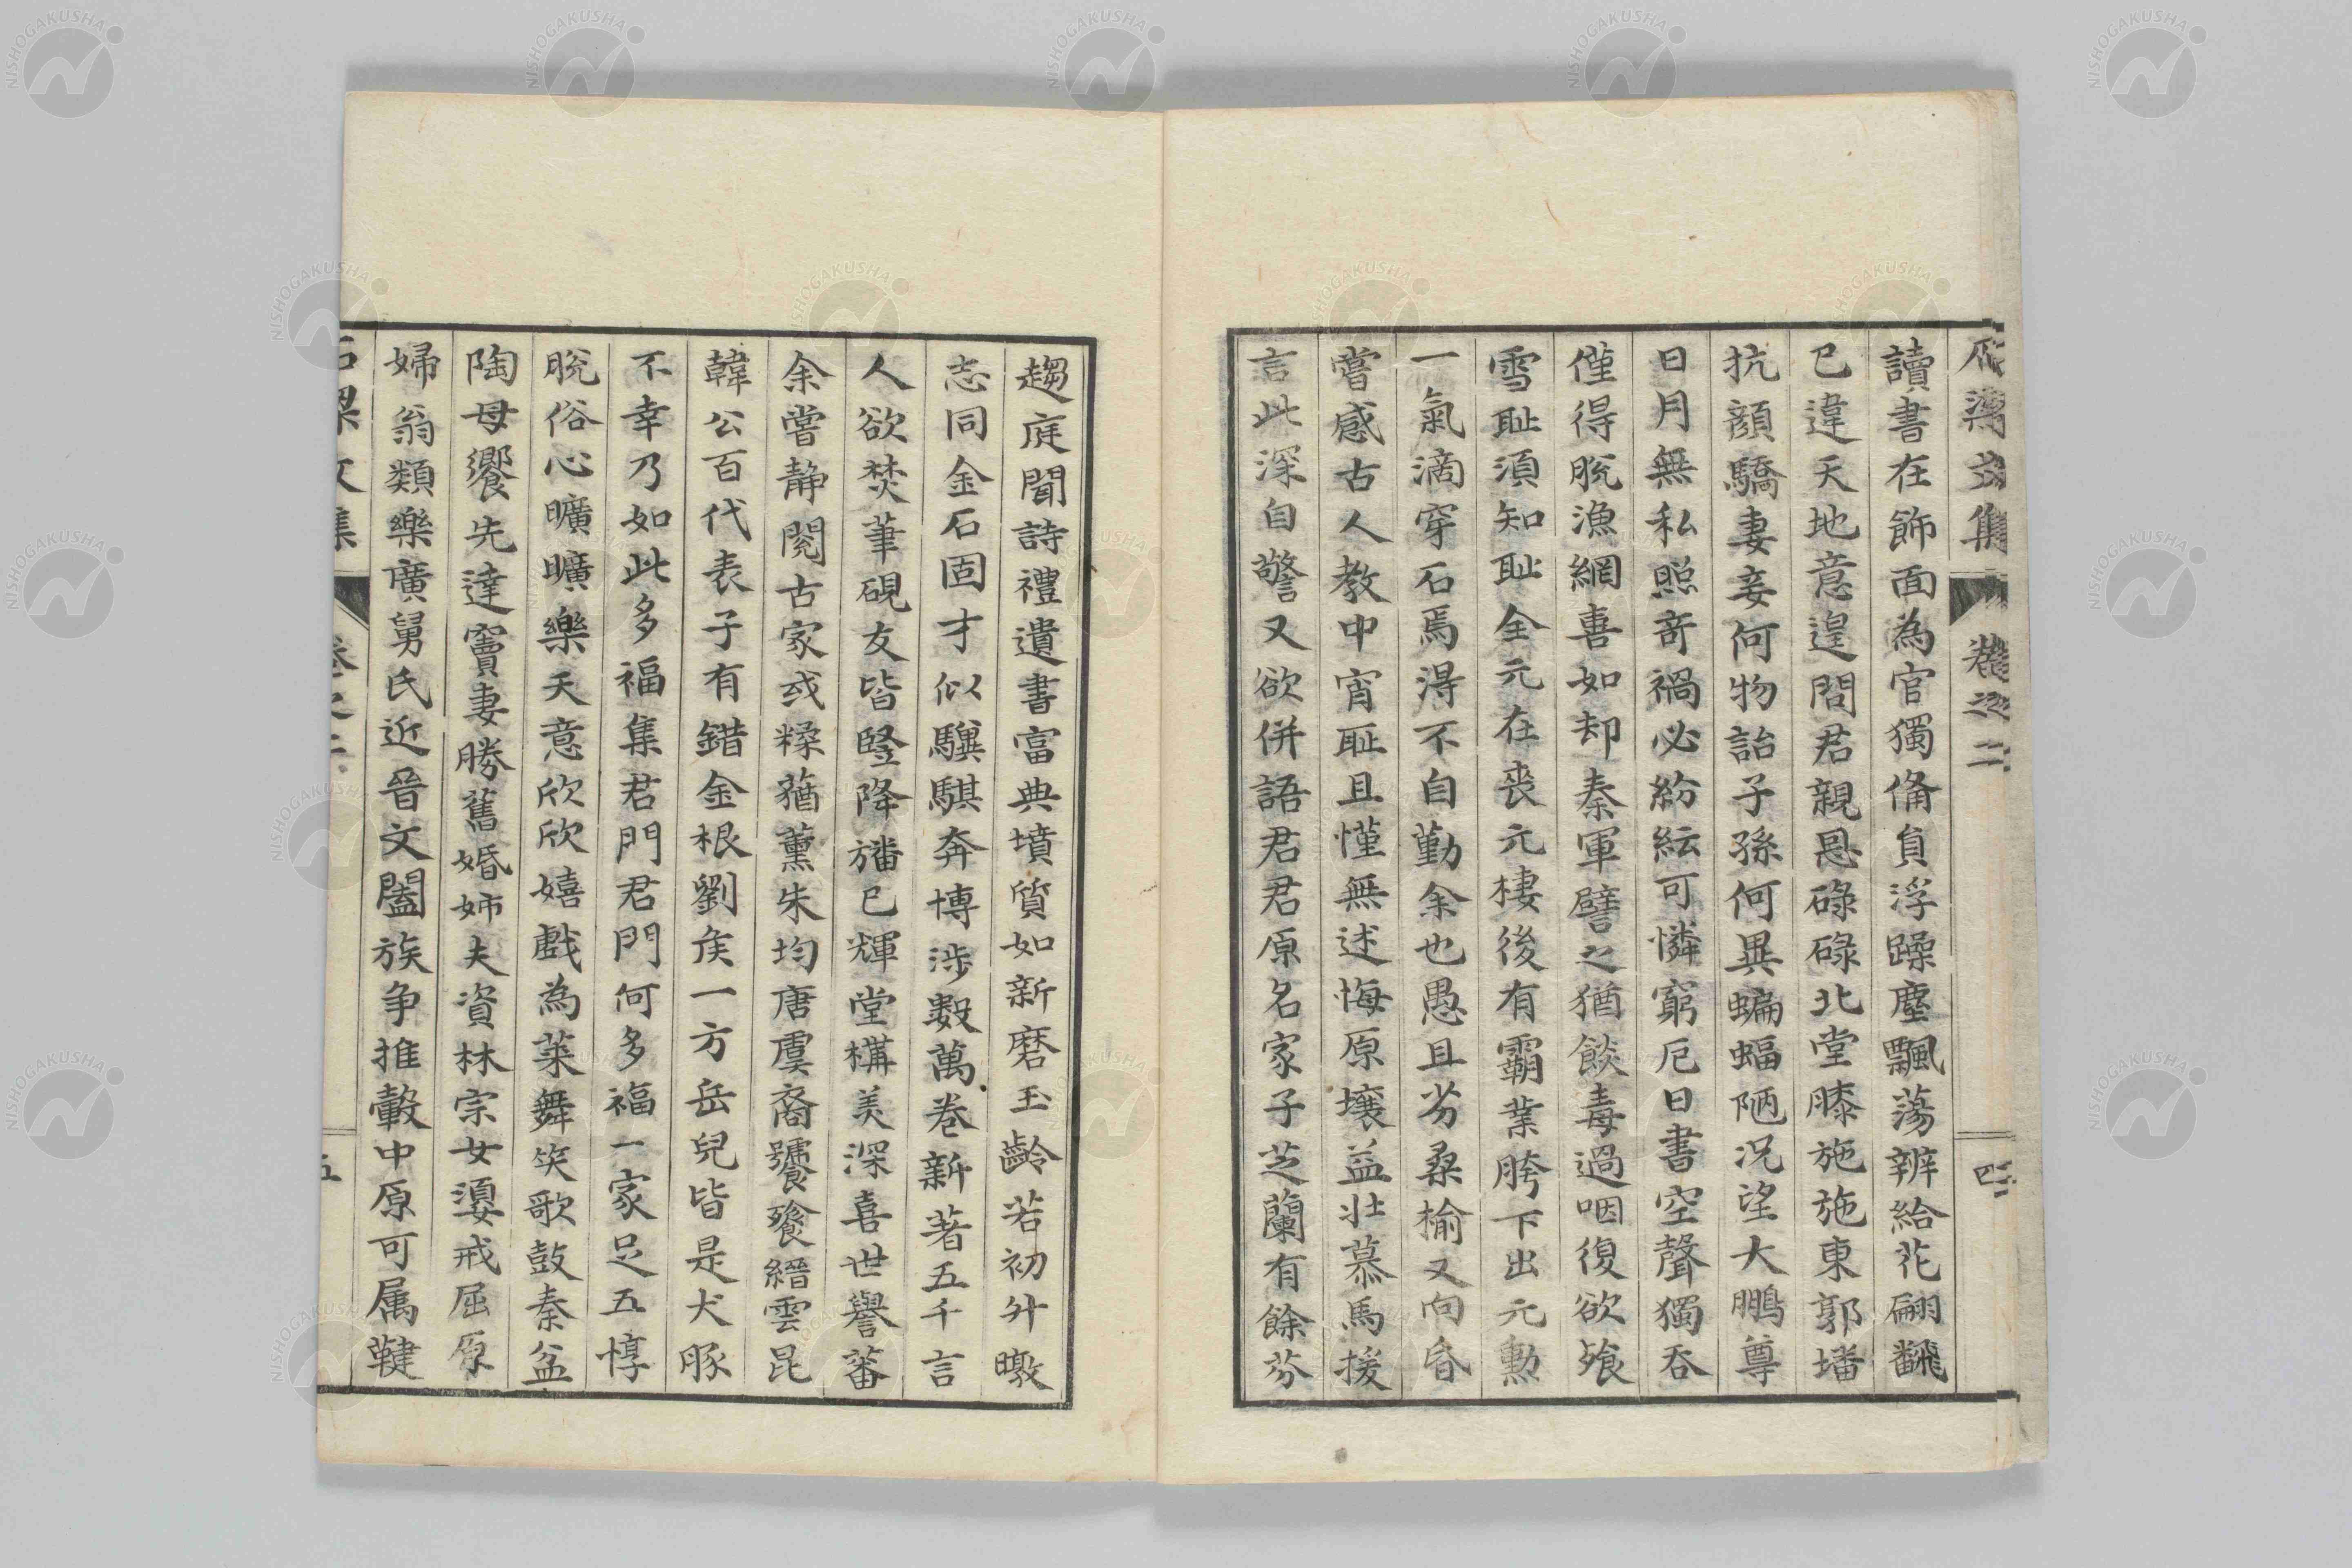 讀書在飾面為官獨脩負浮躁塵飄蕩辨給花翩飜
已違天地意遑問君親恩碌碌北堂膝施施東郭墦
抗顔驕妻妾何物詒子孫何異蝙蝠陋況望大鵬尊
日月無私照奇禍必紛紜可憐窮厄日書空聲獨呑
僅得脫漁網喜如却秦軍譬之猶餤毒過咽復欲飧
雪耻須知耻全元在喪元棲後有霸業胯下出元勳
一氣滴穿石焉得不自勤余也愚且劣桑榆又向昏
嘗感古人教中宵耻且慬無述悔原壤益壯慕馬援
言此深自警又欲併語君君原名家子芝蘭有餘芬
卷之二
四
趨庭聞詩禮遺書富典墳質如新磨玉齡若初升暾
志同金石固才似驥騏奔博涉數萬卷新著五千言
人欲焚筆硯友皆竪降旛已輝堂構美深喜世譽蕃
余嘗靜閱古家或糅蕕薰朱均唐虞裔饕餮縉雲昆
韓公百代表子有錯金根劉矦一方岳兒皆是犬豚
不幸乃如此多福集君門君門何多福一家足五惇
脫俗心曠曠樂天意欣欣嬉戲為萊舞笑歌鼓秦盆
陶母饗先達竇妻勝舊婚姉夫資林宗女媭戒屈原
婦翁類樂廣舅氏近晉文闔族爭推轂中原可属鞬
五
NISHOGAKUSHA